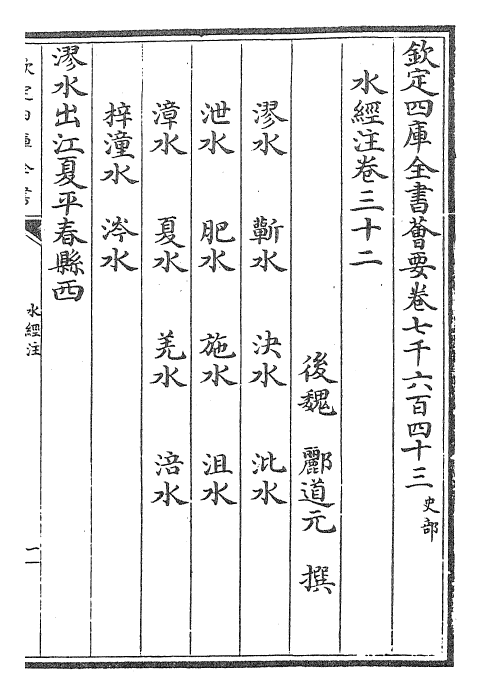 欽定四庫全書薈要卷七千六百四十三 史部
水經注卷三十二
後魏 酈道元 撰
漻水 蘄水 決水 沘水
泄水 肥水 施水 沮水
漳水 夏水 羌水 涪水
梓潼水 涔水
漻水出江夏平春縣西
欽定四庫全書
水經注
一